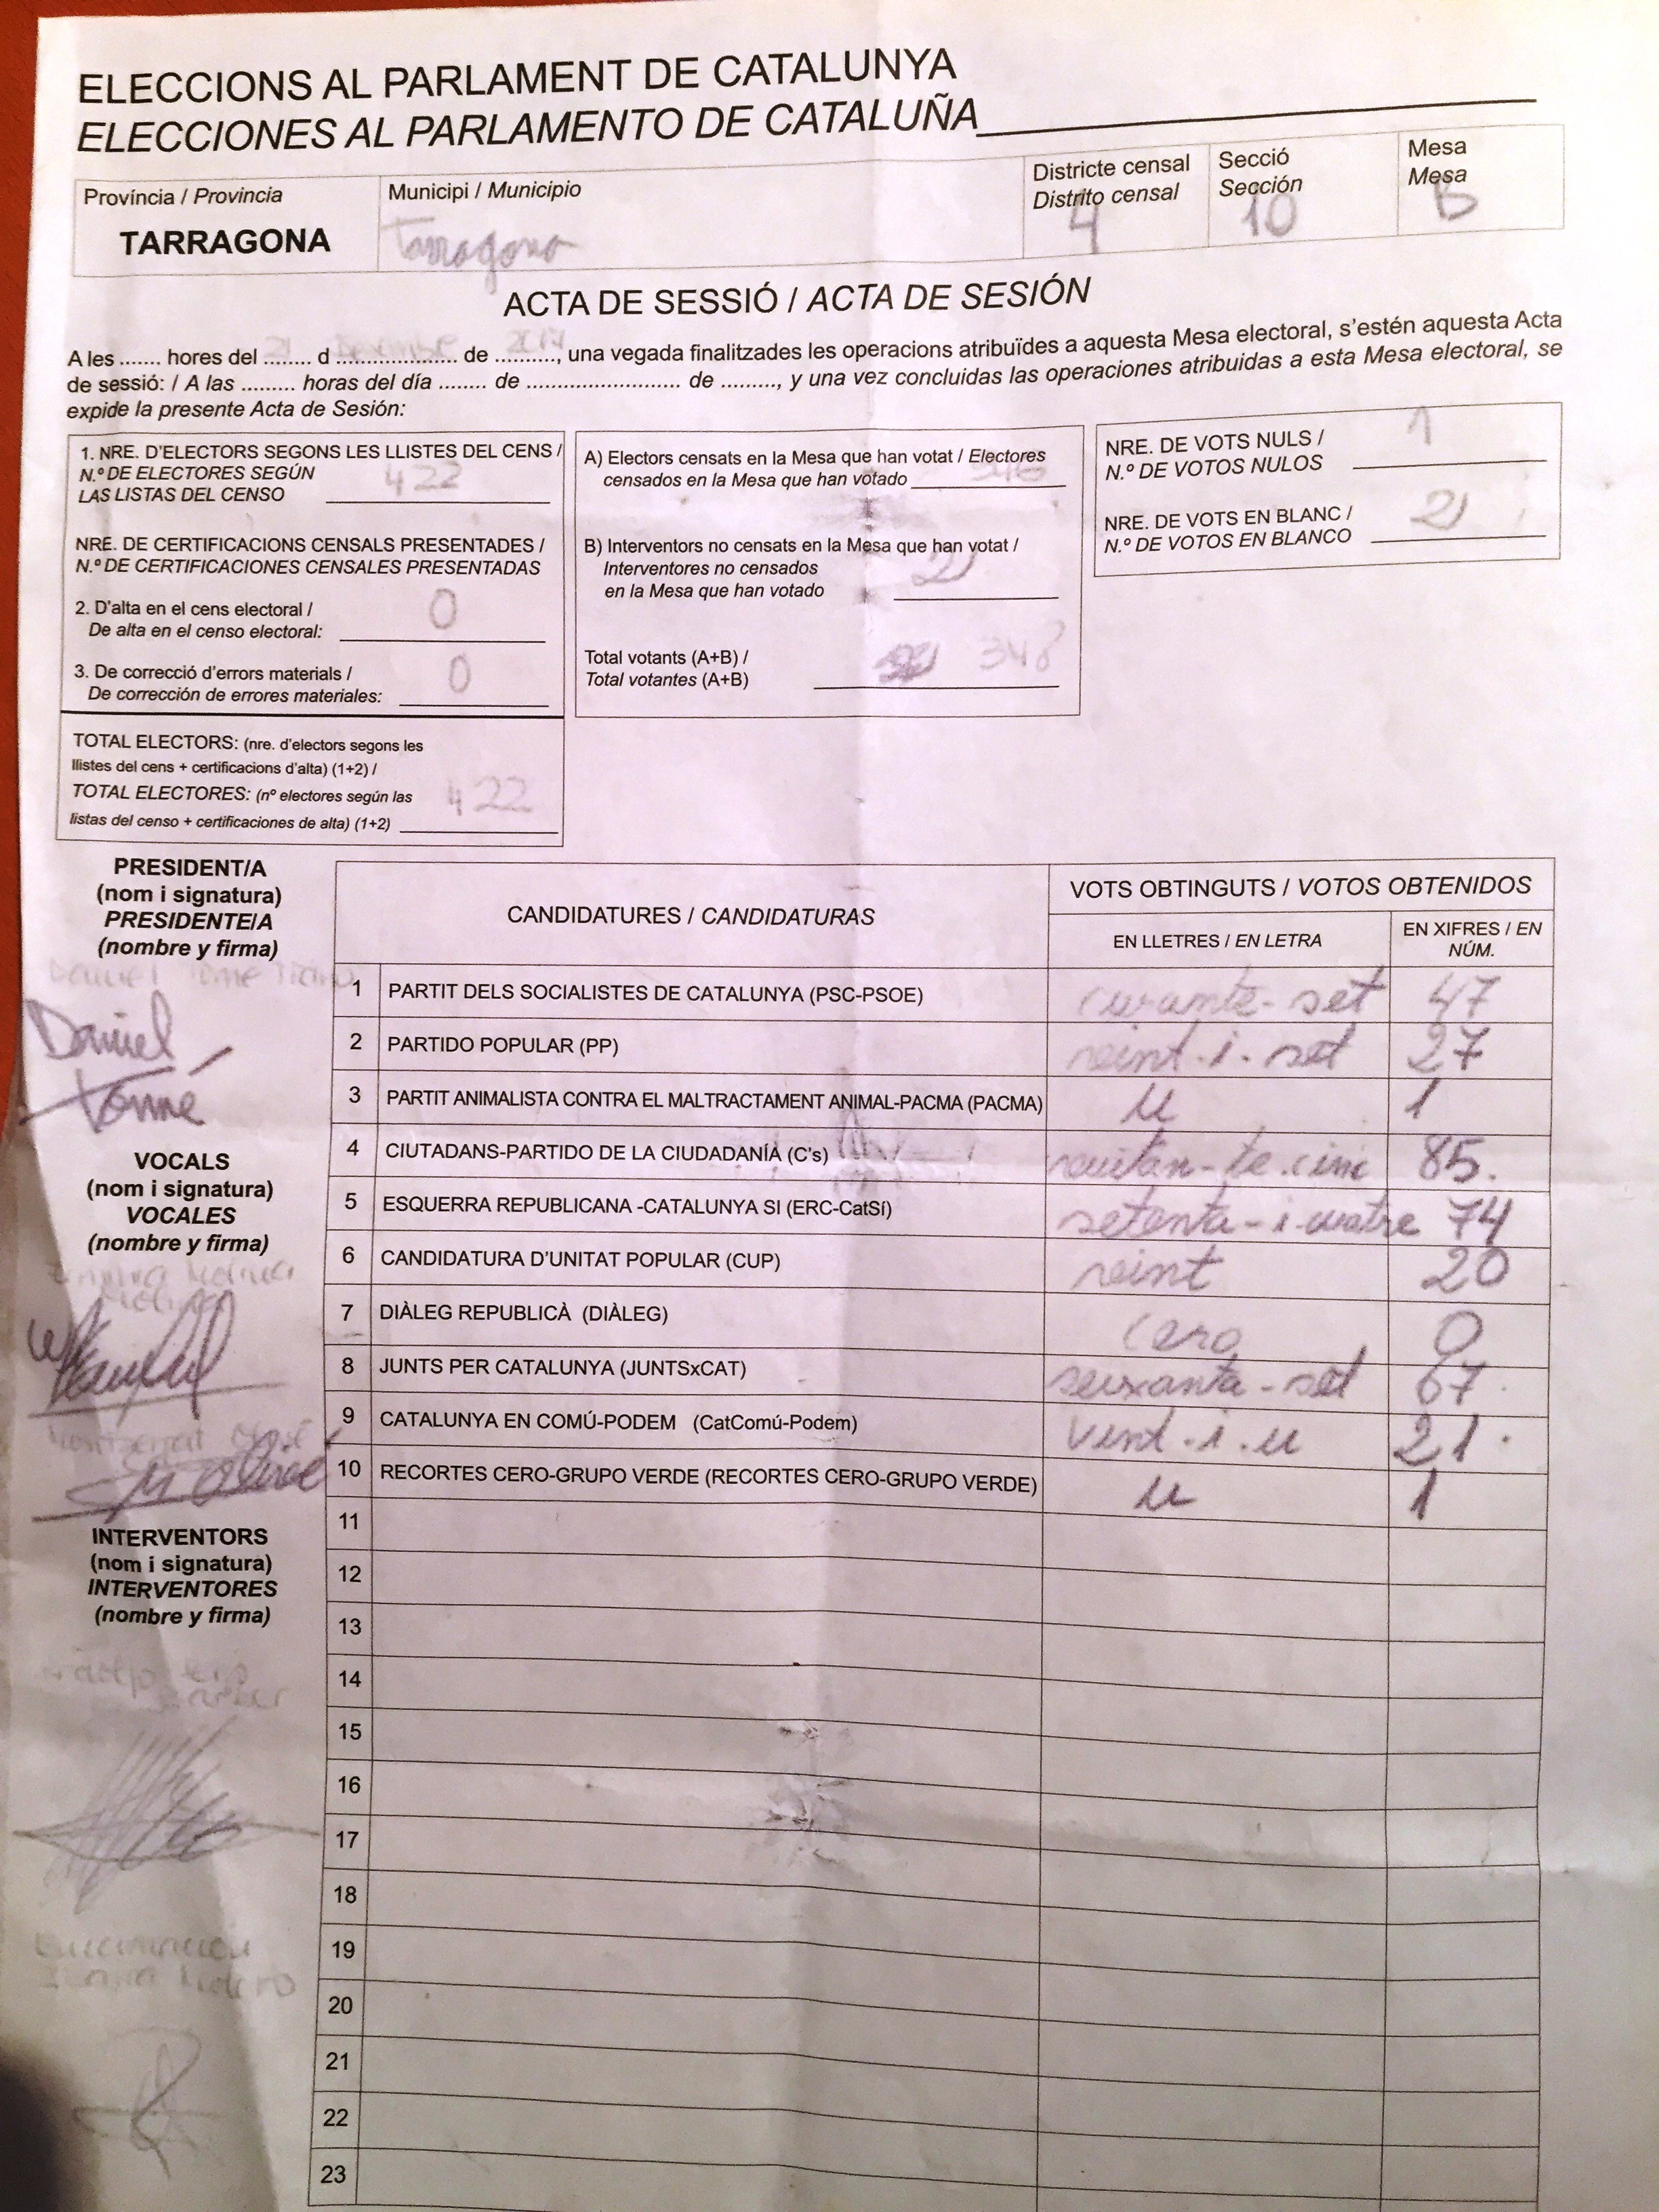 ELECCIONS AL PARLAMENT DE CATALUNYA
ELECCIONES AL PARLAMENTO DE CATALUÑA
Província / Provincia
TARRAGONA
Municipi / Municipio
Tarragona
Districte censal
Distrito censal
4
Secció
Sección
10
Mesa
Mesa
B
ACTA DE SESSIÓ / ACTA DE SESIÓN
A les ....... hores del ........ d ................. de ........., una vegada finalitzades les operacions atribuïdes a aquesta Mesa electoral, s'estén aquesta Acta
de sessió: / A las ........ horas del día ........ de ...................... de ........., y una vez concluidas las operaciones atribuidas a esta Mesa electoral, se
expide la presente Acta de Sesión:
1. NRE. D'ELECTORS SEGONS LES LLISTES DEL CENS /
N.º DE ELECTORES SEGÚN
LAS LISTAS DEL CENSO
422
NRE. DE CERTIFICACIONS CENSALS PRESENTADES /
N.º DE CERTIFICACIONES CENSALES PRESENTADAS
2. D'alta en el cens electoral /
De alta en el censo electoral:
0
3. De correcció d'errors materials /
De correción de errores materiales:
0
TOTAL ELECTORS: (nre. d'electors segons les
llistes del cens + certificacions d'alta) (1+2) /
TOTAL ELECTORES: (nº electores según las
listas del censo + certificaciones de alta) (1+2)
422
A) Electors censats en la Mesa que han votat / Electores
censados en la Mesa que han votado
346
B) Interventors no censats en la Mesa que han votat /
Interventores no censados
en la Mesa que han votado
2
Total votants (A+B) /
Total votantes (A+B)
348
NRE. DE VOTS NULS /
N.º DE VOTOS NULOS
1
NRE. DE VOTS EN BLANC /
N.º DE VOTOS EN BLANCO
2
PRESIDENT/A
(nom i signatura)
PRESIDENTE/A
(nombre y firma)
Daniel
Tomne
VOCALS
(nom i signatura)
VOCALES
(nombre y firma)
INTERVENTORS
(nom i signatura)
INTERVENTORES
(nombre y firma)
CANDIDATURES / CANDIDATURAS
VOTS OBTINGUTS / VOTOS OBTENIDOS
EN LLETRES / EN LETRA
EN XIFRES / EN NÚM.
1 PARTIT DELS SOCIALISTES DE CATALUNYA (PSC-PSOE) 47
2 PARTIDO POPULAR (PP) vint-i-set 27
3 PARTIT ANIMALISTA CONTRA EL MALTRACTAMENT ANIMAL-PACMA (PACMA) u 1
4 CIUTADANS-PARTIDO DE LA CIUDADANÍA (C's) 85.
5 ESQUERRA REPUBLICANA -CATALUNYA SI (ERC-CatSí) setenta-i-uatre 74
6 CANDIDATURA D'UNITAT POPULAR (CUP) veint 20
7 DIÀLEG REPUBLICÀ (DIÀLEG) Cero 0
8 JUNTS PER CATALUNYA (JUNTSxCAT) seixanta-set 67.
9 CATALUNYA EN COMÚ-PODEM (CatComú-Podem) vint-i-u 21.
10 RECORTES CERO-GRUPO VERDE (RECORTES CERO-GRUPO VERDE) u 1
11
12
13
14
15
16
17
18
19
20
21
22
23